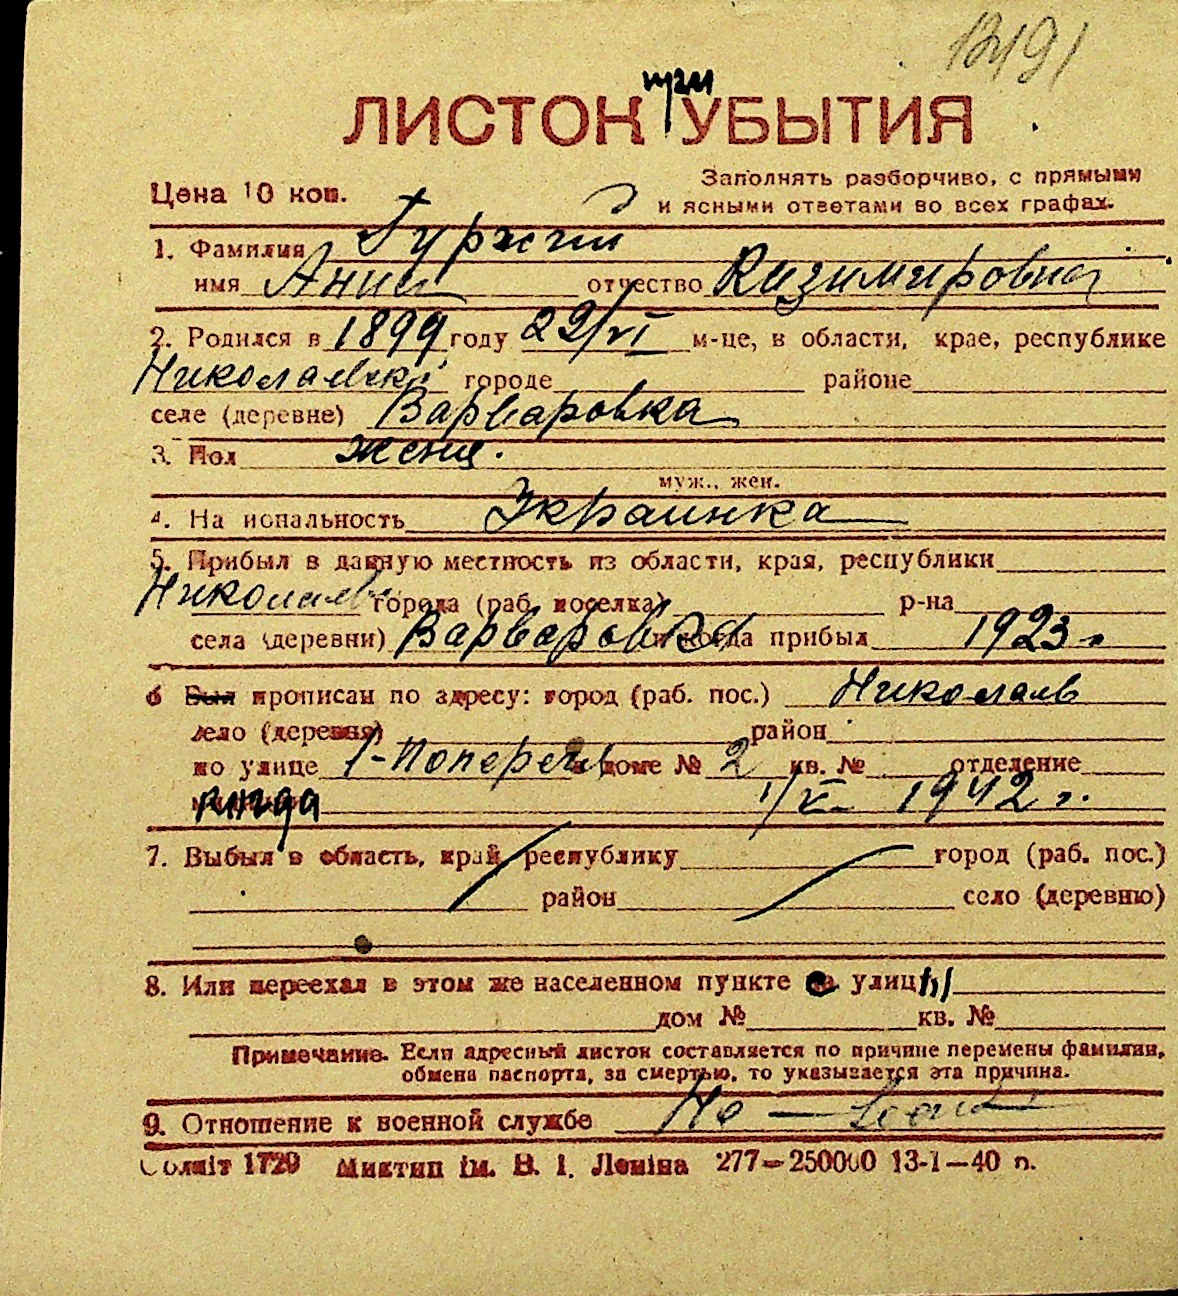 13491
при
ЛИСТОК УБЫТИЯ
Цена 10 коп.
Заполнять разборчиво, с прямыми
и ясными ответами во всех графах.
1. Фамилия
имя Анна отчество Казимировна
2. Родился в 1899 году 22/VI м-це, в области, крае, республике
Николаевской городе районе
селе (деревне) Варваровка
3. Пол женщ.
муж., жен.
4. Национальность Украинка
5. Прибыл в данную местность из области, края, республики
Николаев города (раб. поселка) р-на
села (деревни) Варваровка и когда прибыл 1923 г.
6 Был прописан по адресу: город (раб. пос.) Николаев
село (деревня) район
по улице 1-Попереч в доме № 2 кв. № отделение
когда 1/V 1942 г.
7. Выбыл в область, край, республику город (раб. пос.)
район село (деревню)
8. Или переехал в этом же населенном пункте на улицы
дом № кв. №
Примечание. Если адресный листок составляется по причине перемены фамилии,
обмена паспорта, за смертью, то указывается эта причина.
9. Отношение к военной службе
Облліт 1729 Миктип ім. В. І. Леніна 277—250000 13-1—40 п.